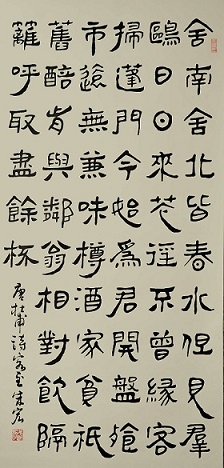 舍南舍北皆春水但見羣
鷗日日來花徑不曾緣客
掃蓬門今始爲君開盤飧
市遠無兼味樽酒家貧祇
舊醅肯與鄰翁相對飲隔
籬呼取盡餘杯
唐杜甫詩客至